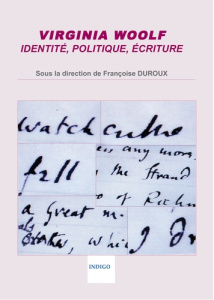 VIRGINIA WOOLF
IDENTITÉ, POLITIQUE, ÉCRITURE
Sous la direction de Françoise DUROUX
watch
fell
any more,
the Strand
of Rich
a Great
whi
INDIGO